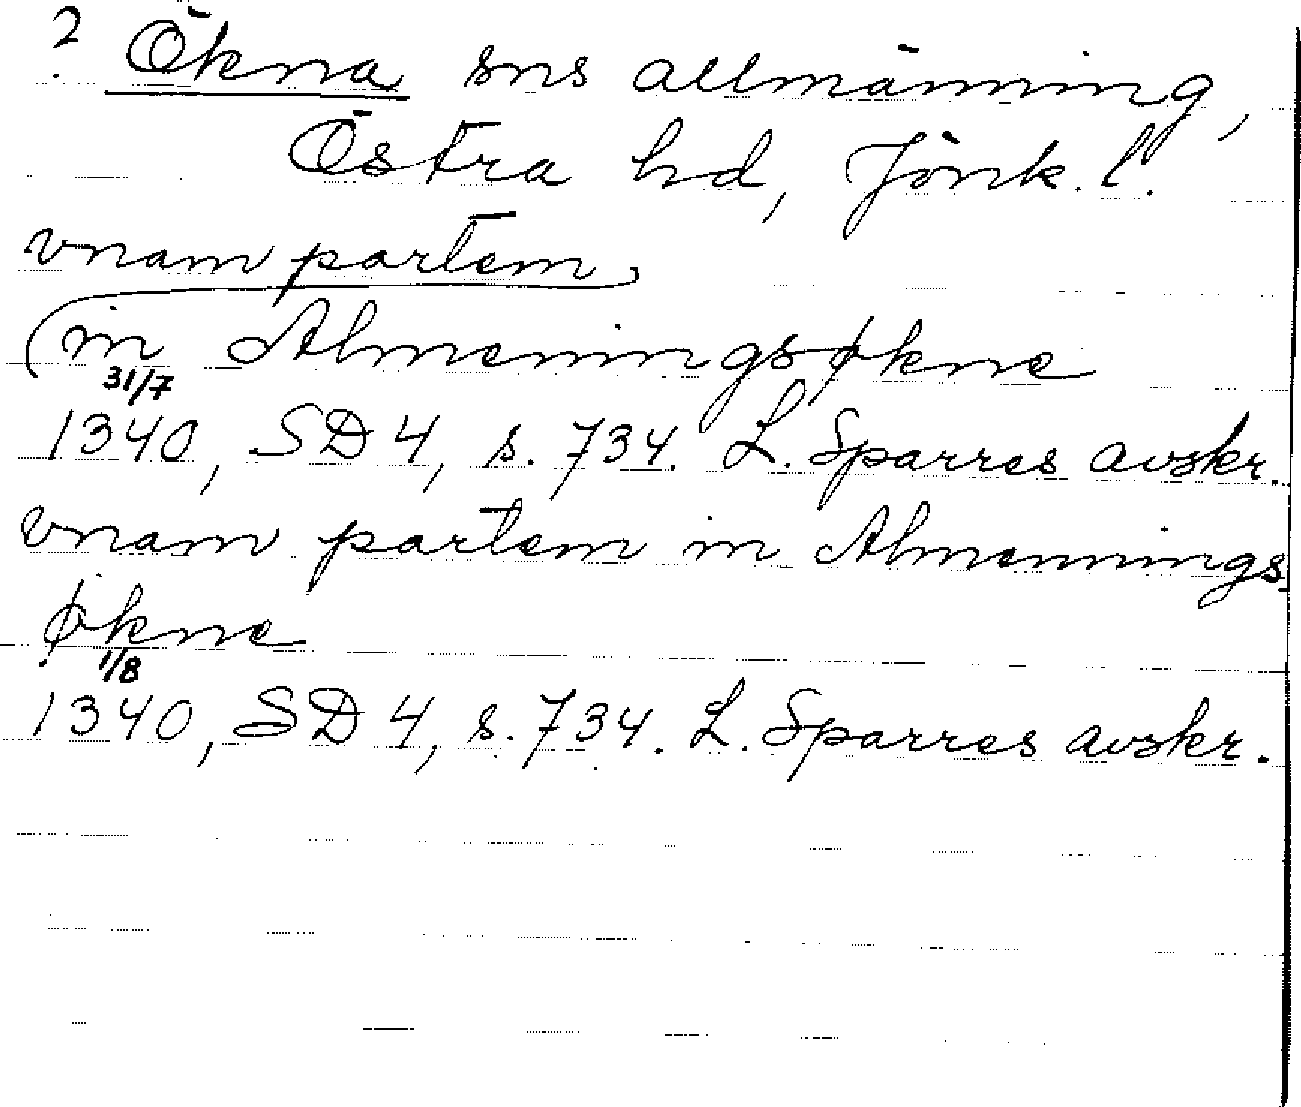 ? Ökna sns allmänning,
Östra hd, Jönk. l.
vnam partem
(in Almeningsøkne
31/7
1340, SD 4, s. 734. L. Sparres avskr.
vnam partem in Almennings
økne
1/8
1340, SD 4, s. 734. L. Sparres avskr.